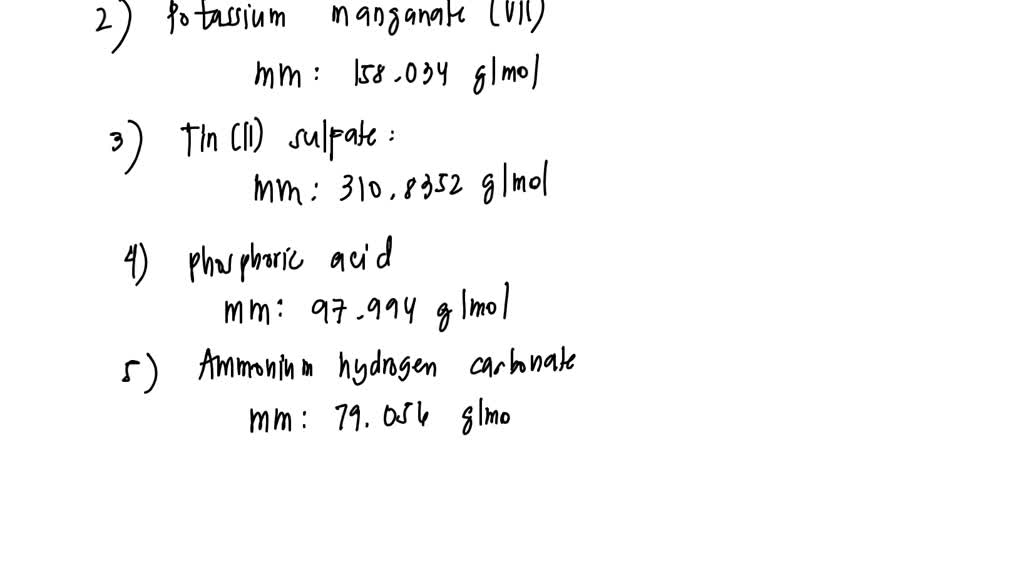 2) Potassium manganate (VII)
mm: 158.034 g/mol
3) Tin (II) sulpate:
mm: 310.8352 g/mol
4) phosphoric acid
mm: 97.994 g/mol
5) Ammonium hydrogen carbonate
mm: 79.056 g/mo